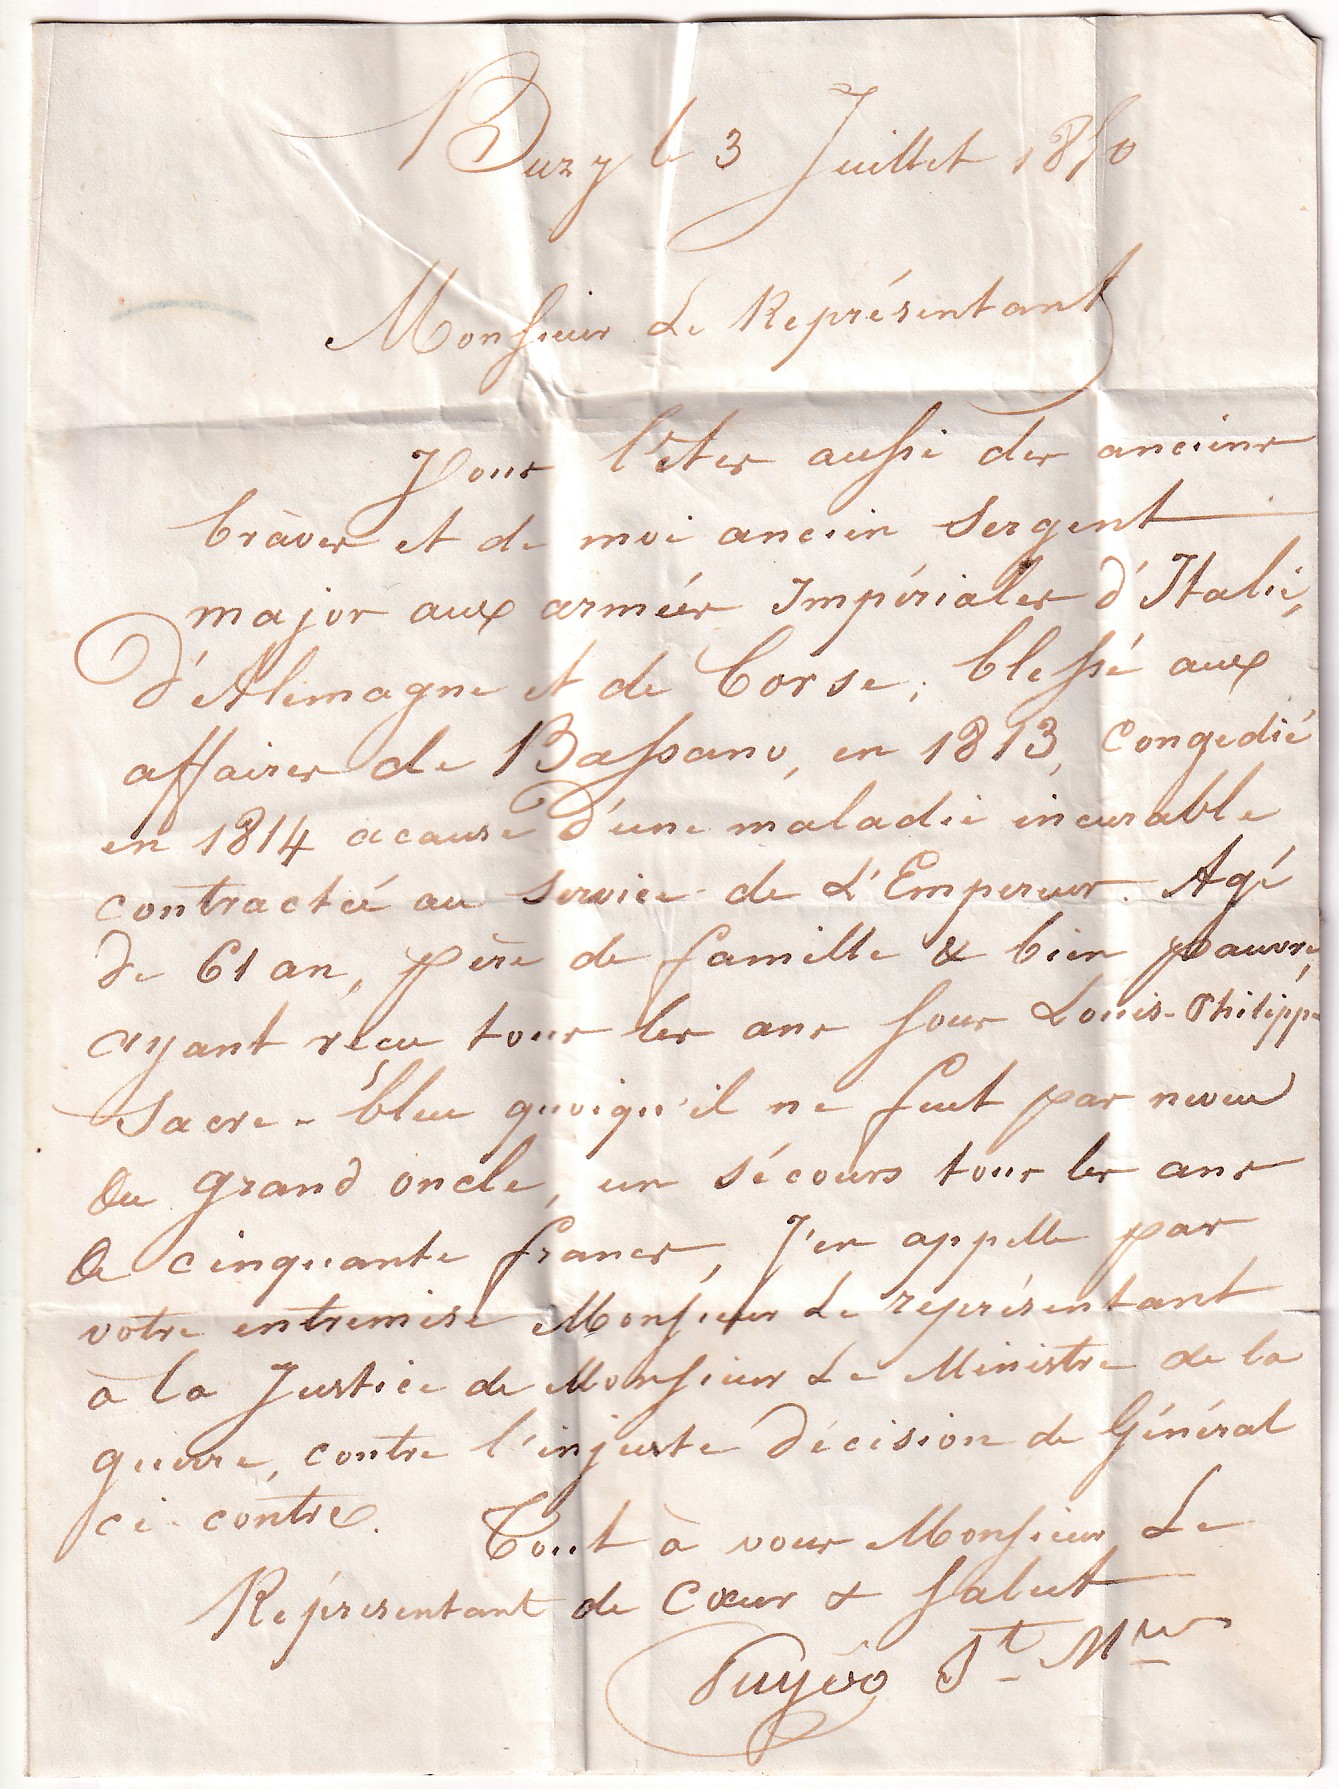 Buzy le 3 Juillet 1850
Monsieur Le Représentant
Pour l'êtes aussi des anciens
bràves et de moi ancien Sergent
major aux armées Impériales d'Italie,
d'Alemagne et de Corse, blessé aux
affaires de Bassano, en 1813, Congedié
en 1814 acause d'une maladie incurable
contractée au Service de L'Empereur. Agé
de 61 an, père de famille & bien pauvre,
ayant réçu tous les ans sous Louis-Philippe
Sacre-bleu quoiqu'il ne fut pas neveu
Du grand oncle, un sécours tous les ans
De cinquante francs, J'en appelle par
votre entremise Monsieur Le représentant
à la Justice de Monsieur Le Ministre de la
guerre, contre l'injuste décision de Général
ci-contre. Tout à vous Monsieur Le
Réprésentant de Cœur & Salut
Puyòo St